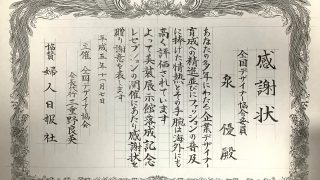 感謝状
全国デザイナー協会委員
泉優殿
あなたの多年にわたる企業デザイナー
育成への精進並びにファッションの普及
に捧げた情熱とその手腕は海外にも
高く評価されています
よって美装展示館落成記念
レセプションの開催にあたり感謝状を
贈り謝意を表します
平成五年十一月七日
主催 全国デザイナー協会
会長 三重野良英
協賛 婦人日報社